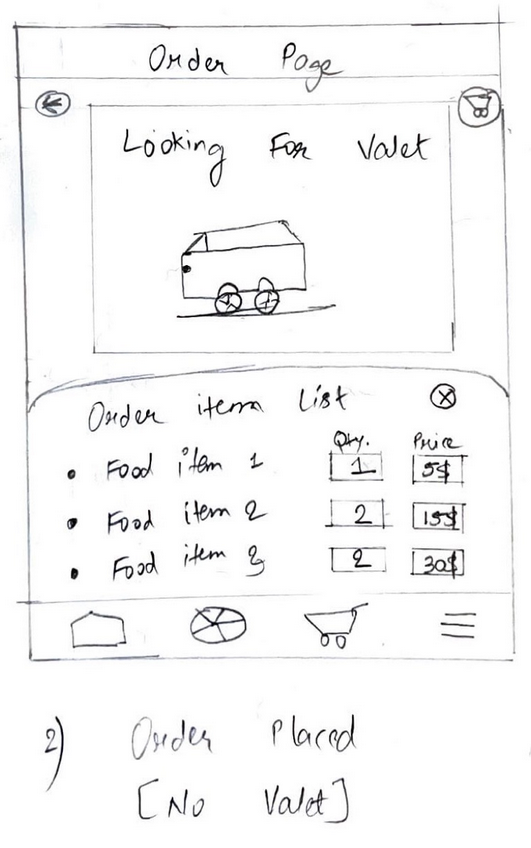 Order Page
Looking For Valet
Order item List
Qty. Price
Food item 1 1 5$
Food item 2 2 15$
Food item 3 2 30$
2) Order Placed
[No Valet]